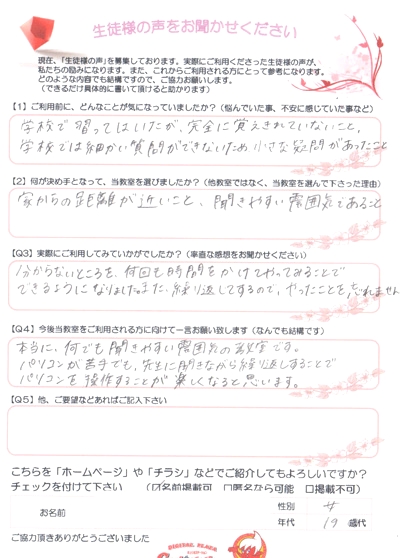 生徒様の声をお聞かせください
現在、「生徒様の声」を募集しております。実際にご利用くださった生徒様の声が、
私たちの励みになります。また、これからご利用される方にとって参考になります。
どのような内容でも結構ですので、ご協力お願いします。
（できるだけ具体的に書いて頂けると助かります）
【1】ご利用前に、どんなことが気になっていましたか？（悩んでいた事、不安に感じていた事など）
学校で習ってはいたが、完全に覚えきれていないこと。
学校では細かい質問ができないため小さな疑問があったこと
【2】何が決め手となって、当教室を選びましたか？（他教室ではなく、当教室を選んで下さった理由）
家からの距離が近いこと、聞きやすい雰囲気であること
【Q3】実際にご利用してみていかがでしたか？（率直な感想をお聞かせください）
分からないところを、何回も時間をかけてやってみることで
できるようになりました。また、繰り返してするので、やったことを忘れません
【Q4】今後当教室をご利用される方に向けて一言お願い致します（なんでも結構です）
本当に、何でも聞きやすい雰囲気の教室です。
パソコンが苦手でも、先生に聞きながら繰り返しすることで
パソコンを操作することが楽しくなると思います。
【Q5】他、ご要望などあればご記入下さい
こちらを「ホームページ」や「チラシ」などでご紹介してもよろしいですか？
チェックを付けて下さい　（☑名前掲載可　□匿名なら可能　□掲載不可）
お名前
性別 女
年代 19 歳代
ご協力頂きありがとうございました
DIGITAL PLAZA